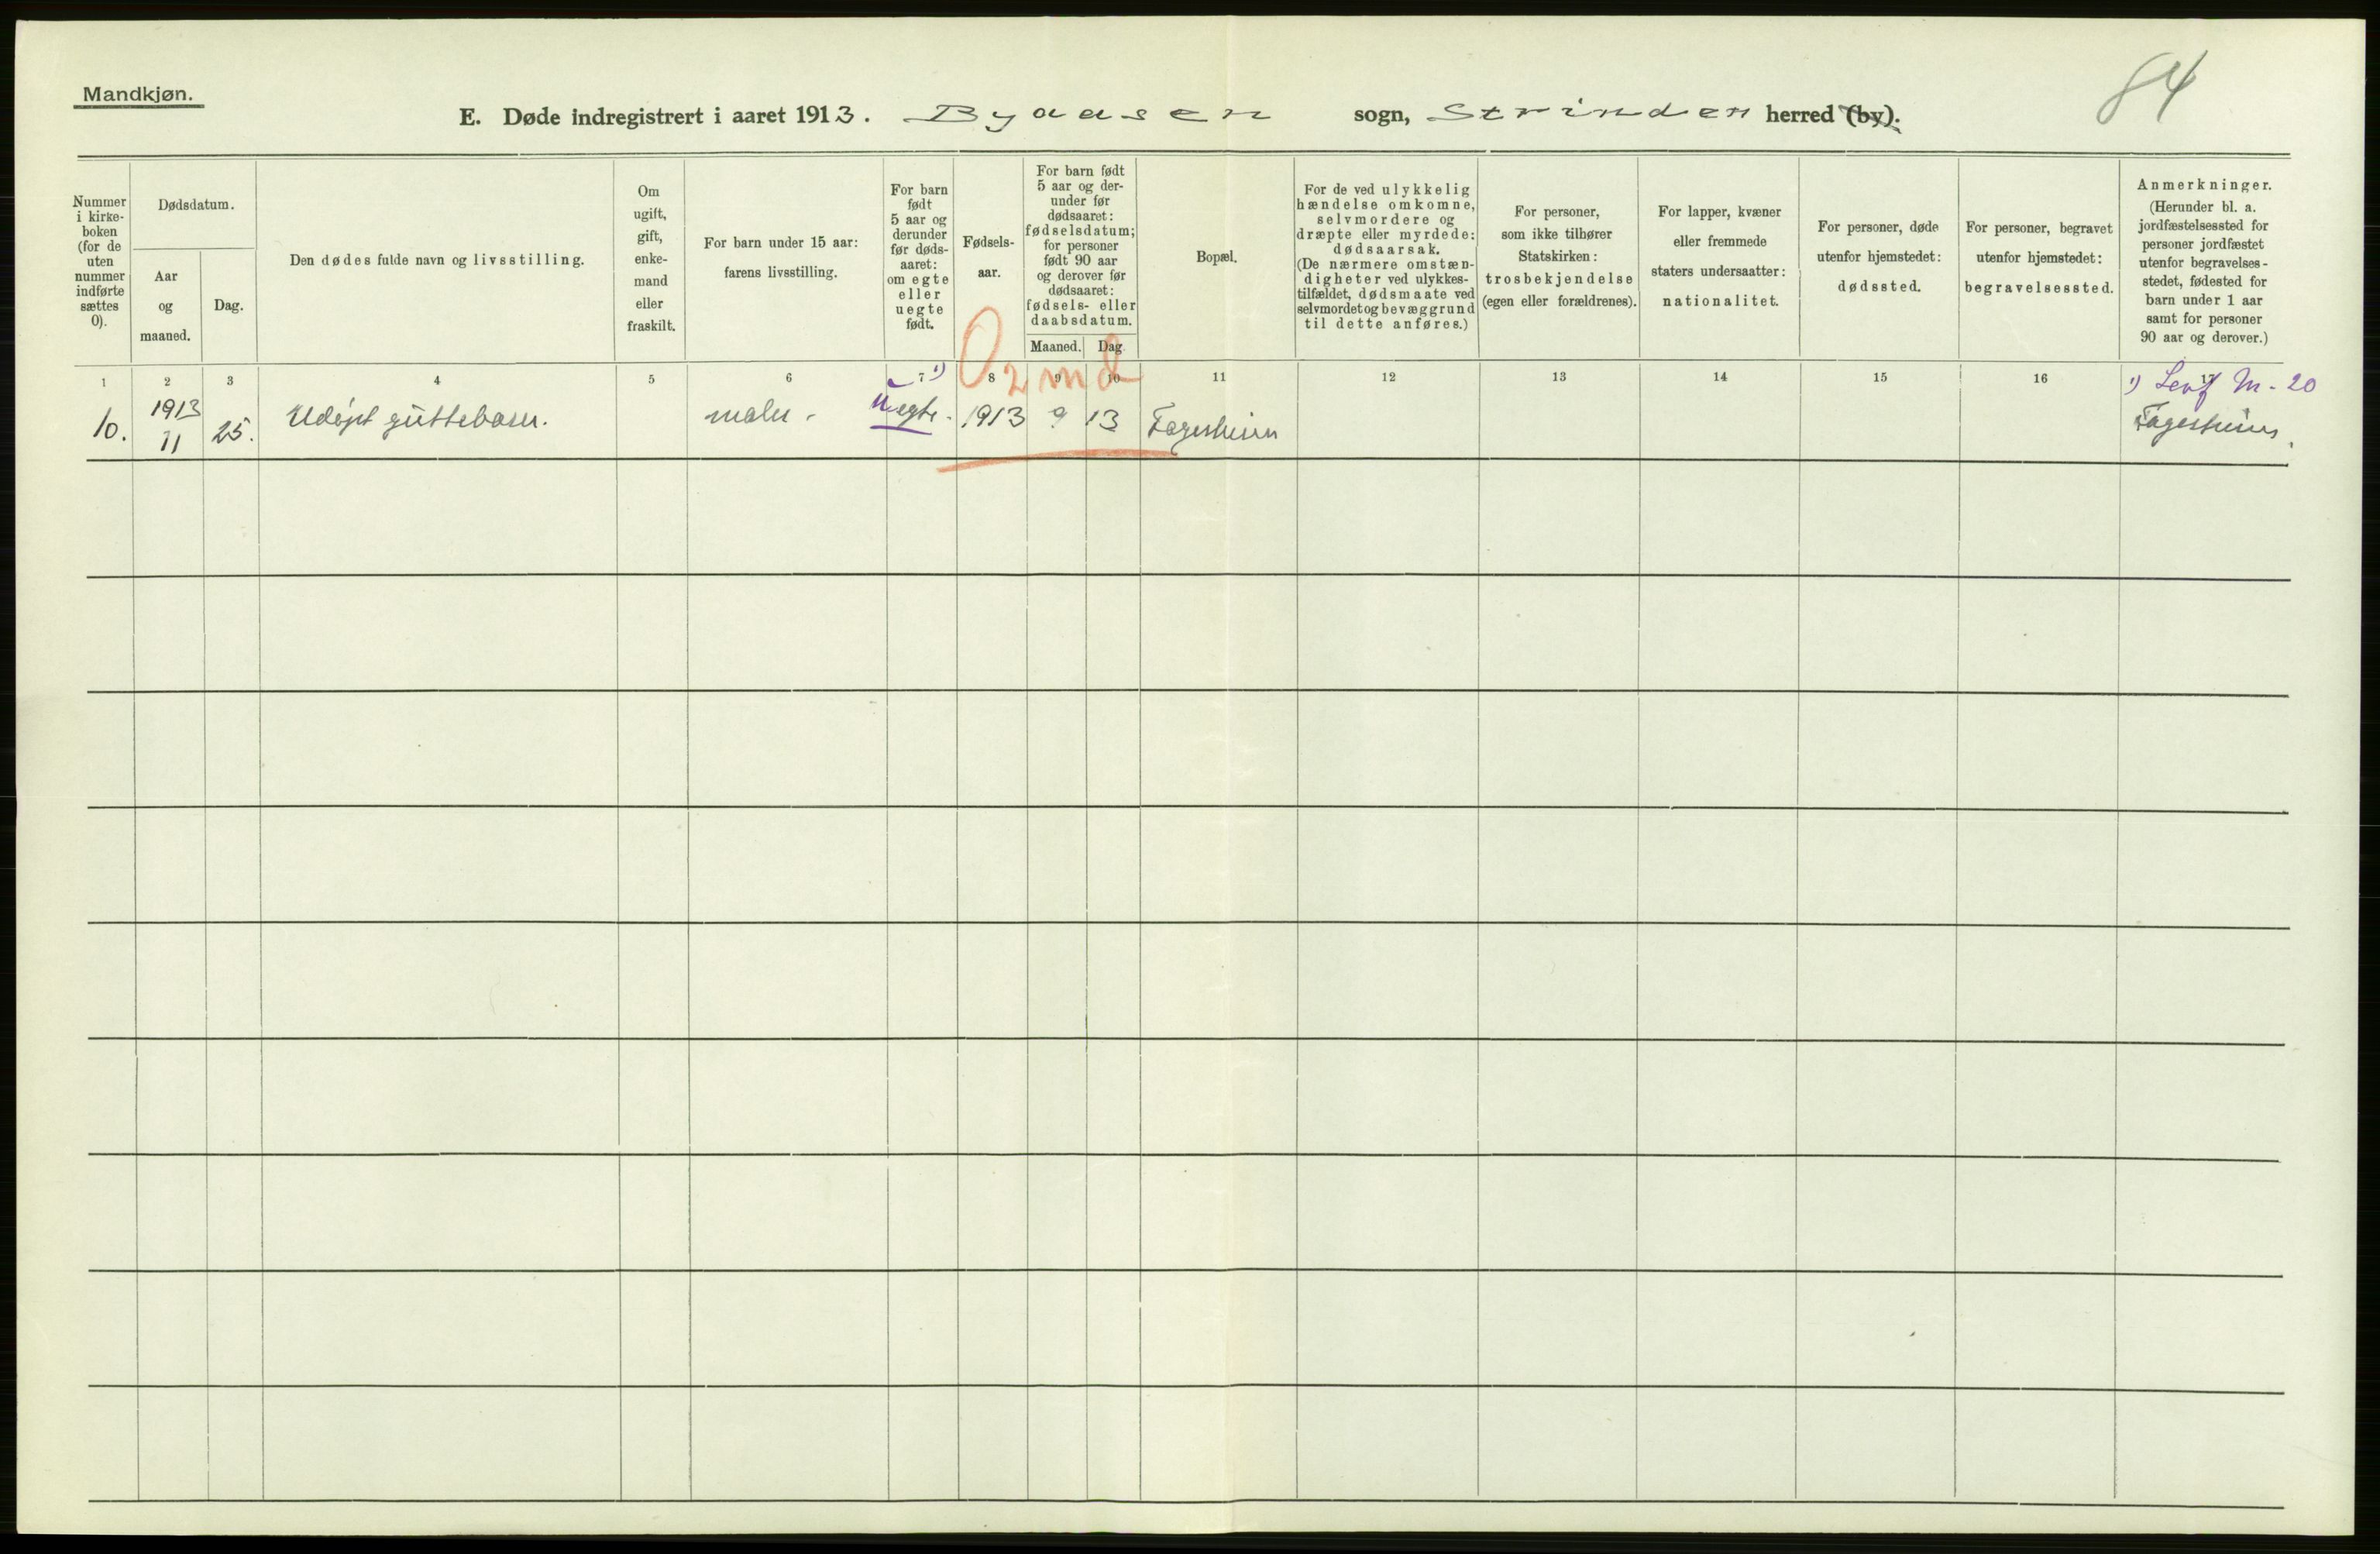 Mandkjøn.
84
E. Døde indregistrert i aaret 1913. Byaasen sogn, Strinden herred (by).
Nummer
i kirke-
boken
(for de
uten
nummer
indførte
sættes
0).
Dødsdatum.
Aar
og
maaned.
Dag.
Den dødes fulde navn og livsstilling.
Om
ugift,
gift,
enke-
mand
eller
fraskilt.
For barn under 15 aar:
farens livsstilling.
For barn
født
5 aar og
derunder
før døds-
aaret:
om egte
eller
uegte
født.
Fødsels-
aar.
For barn født
5 aar og der-
under før
dødsaaret:
fødselsdatum;
for personer
født 90 aar
og derover før
dødsaaret:
fødsels- eller
daabsdatum.
Maaned. Dag
Bopæl.
For de ved ulykkelig
hændelse omkomne,
selvmordere og
dræpte eller myrdede:
dødsaarsak.
(De nærmere omstæn-
digheter ved ulykkes-
tilfældet, dødsmaate ved
selvmordet og bevæggrund
til dette anføres.)
For personer,
som ikke tilhører
Statskirken:
trosbekjendelse
(egen eller forældrenes).
For lapper, kvæner
eller fremmede
staters undersaatter:
nationalitet.
For personer, døde
utenfor hjemstedet:
dødssted.
For personer, begravet
utenfor hjemstedet:
begravelsessted.
Anmerkninger.
(Herunder bl. a.
jordfæstelsessted for
personer jordfæstet
utenfor begravelses-
stedet, fødested for
barn under 1 aar
samt for personer
90 aar og derover.)
1 2 3 4 5 6 7 8 9 10 11 12 13 14 15 16 17
0 2 md
1) 1) Levf M-20
10. 1913 11 25. Udøpt guttebarn. maler - Uegte. 1913 9 13 Fagerheim Fagerheim.